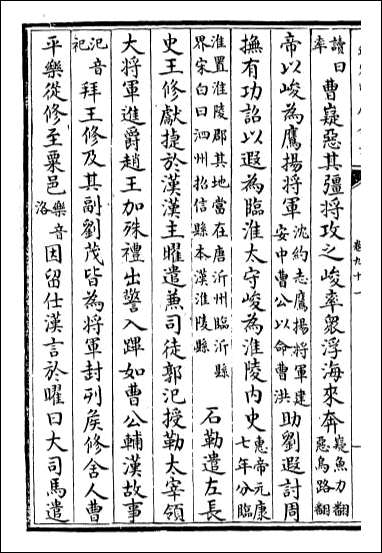 讀曰率曹嶷惡其彊將攻之峻率衆浮海來奔嶷魚力翻惡烏路翻
帝以峻為鷹揚將軍沈約志鷹揚將軍建安中曹公以命曹洪助劉遐討周
撫有功詔以遐為臨淮太守峻為淮陵內史惠帝元康七年分臨
淮置淮陵郡其地當在唐沂州臨沂縣界宋白曰泗州招信縣本漢淮陵縣石勒遣左長
史王修獻捷於漢漢主曜遣兼司徒郭汜授勒太宰領
大將軍進爵趙王加殊禮出警入蹕如曹公輔漢故事
汜音祀拜王修及其副劉茂皆為將軍封列侯修舍人曹
平樂從修至粟邑樂音洛因留仕漢言於曜曰大司馬遣
卷九十一